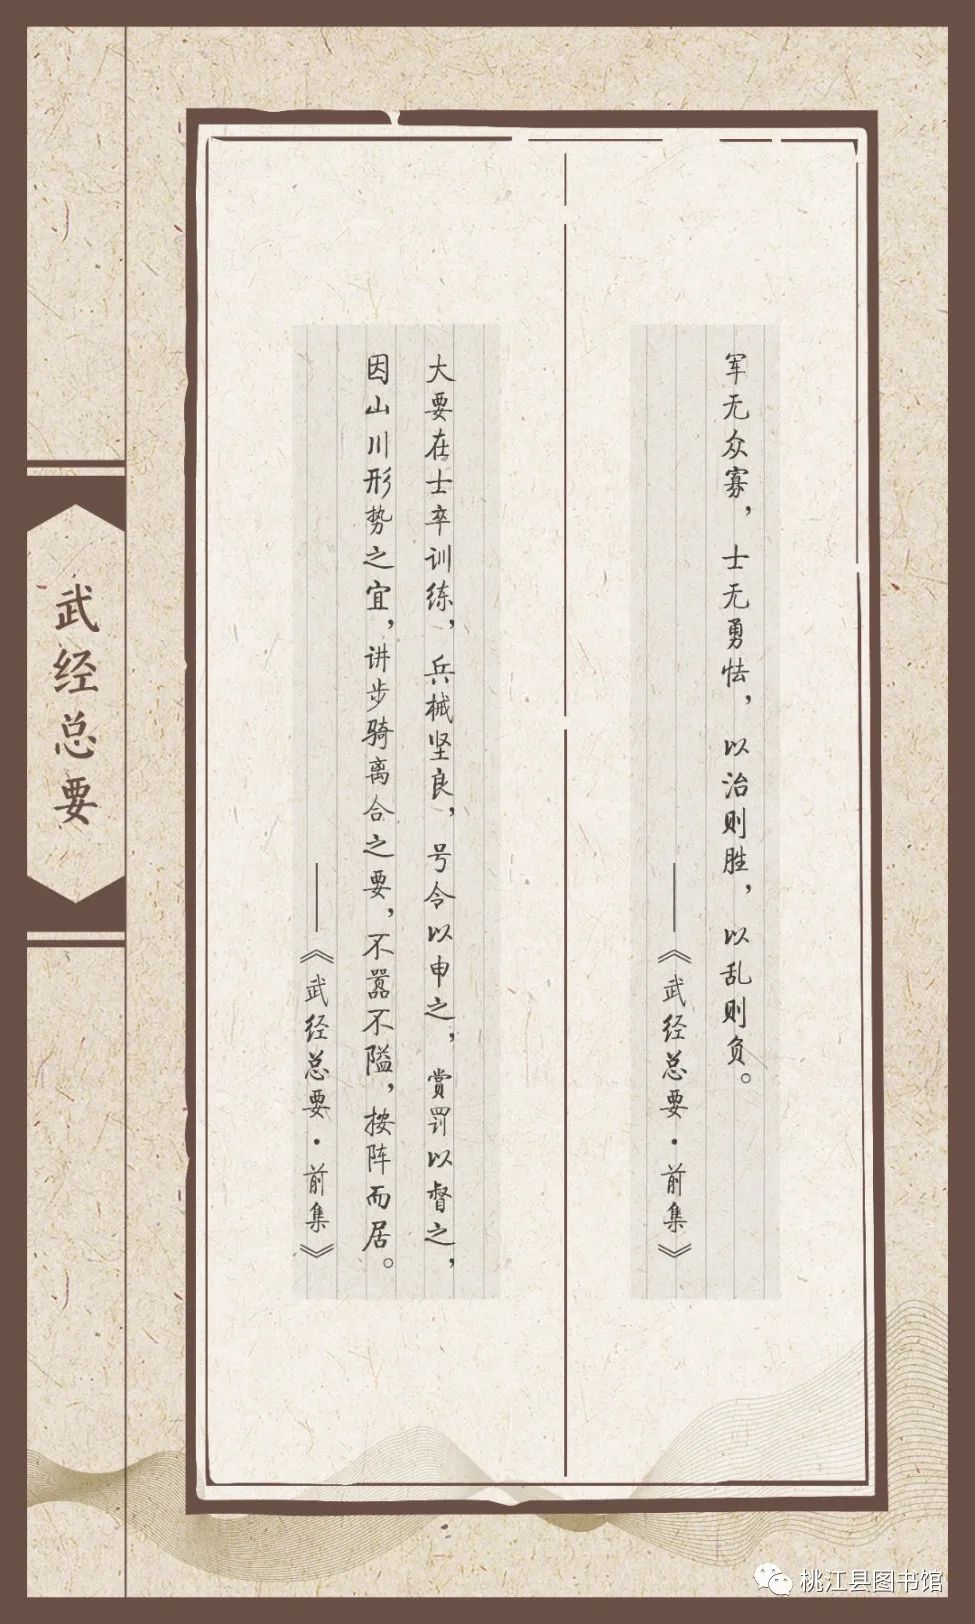 军无众寡，士无勇怯，以治则胜，以乱则负。
——《武经总要·前集》
大要在士卒训练，兵械坚良，号令以申之，赏罚以督之，
因山川形势之宜，讲步骑离合之要，不嚣不隘，按阵而居。
——《武经总要·前集》
武经总要
桃江县图书馆